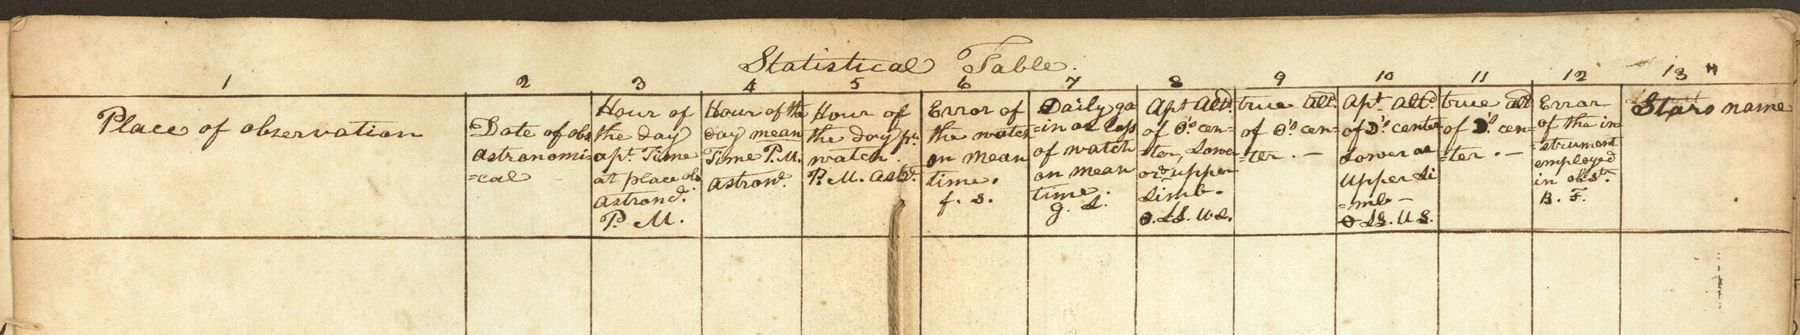 Statistical Table.
1 2 3 4 5 6 7 8 9 10 11 12 13
Place of observation
Date of obs
Astronomi
=cal
Hour of
the day
apt. Time
at place ob.
Astrond.
P. M.
Hour of the
day mean
Time P.M.
Astrond.
Hour of
the day pr.
watch.
P. M. Astd.
Error of
the watch
on mean
time.
f. s.
Daily ga
=in or loss
of watch
on mean
time.
g. l.
Apt Altd.
of ☉'s cen=
=ter, Lower
or upper
Limb.
☉. LS. U.S.
true alt.
of ☉'s cen=
=ter. —
Apt. Altd.
of ☽'s center
Lower or
Upper Li
=mb —
☉ LS. U S.
true alt
of ☽'s cen=
=ter. —
Error
of the in
=strument
employed
in obstn.
B. F.
Stars name